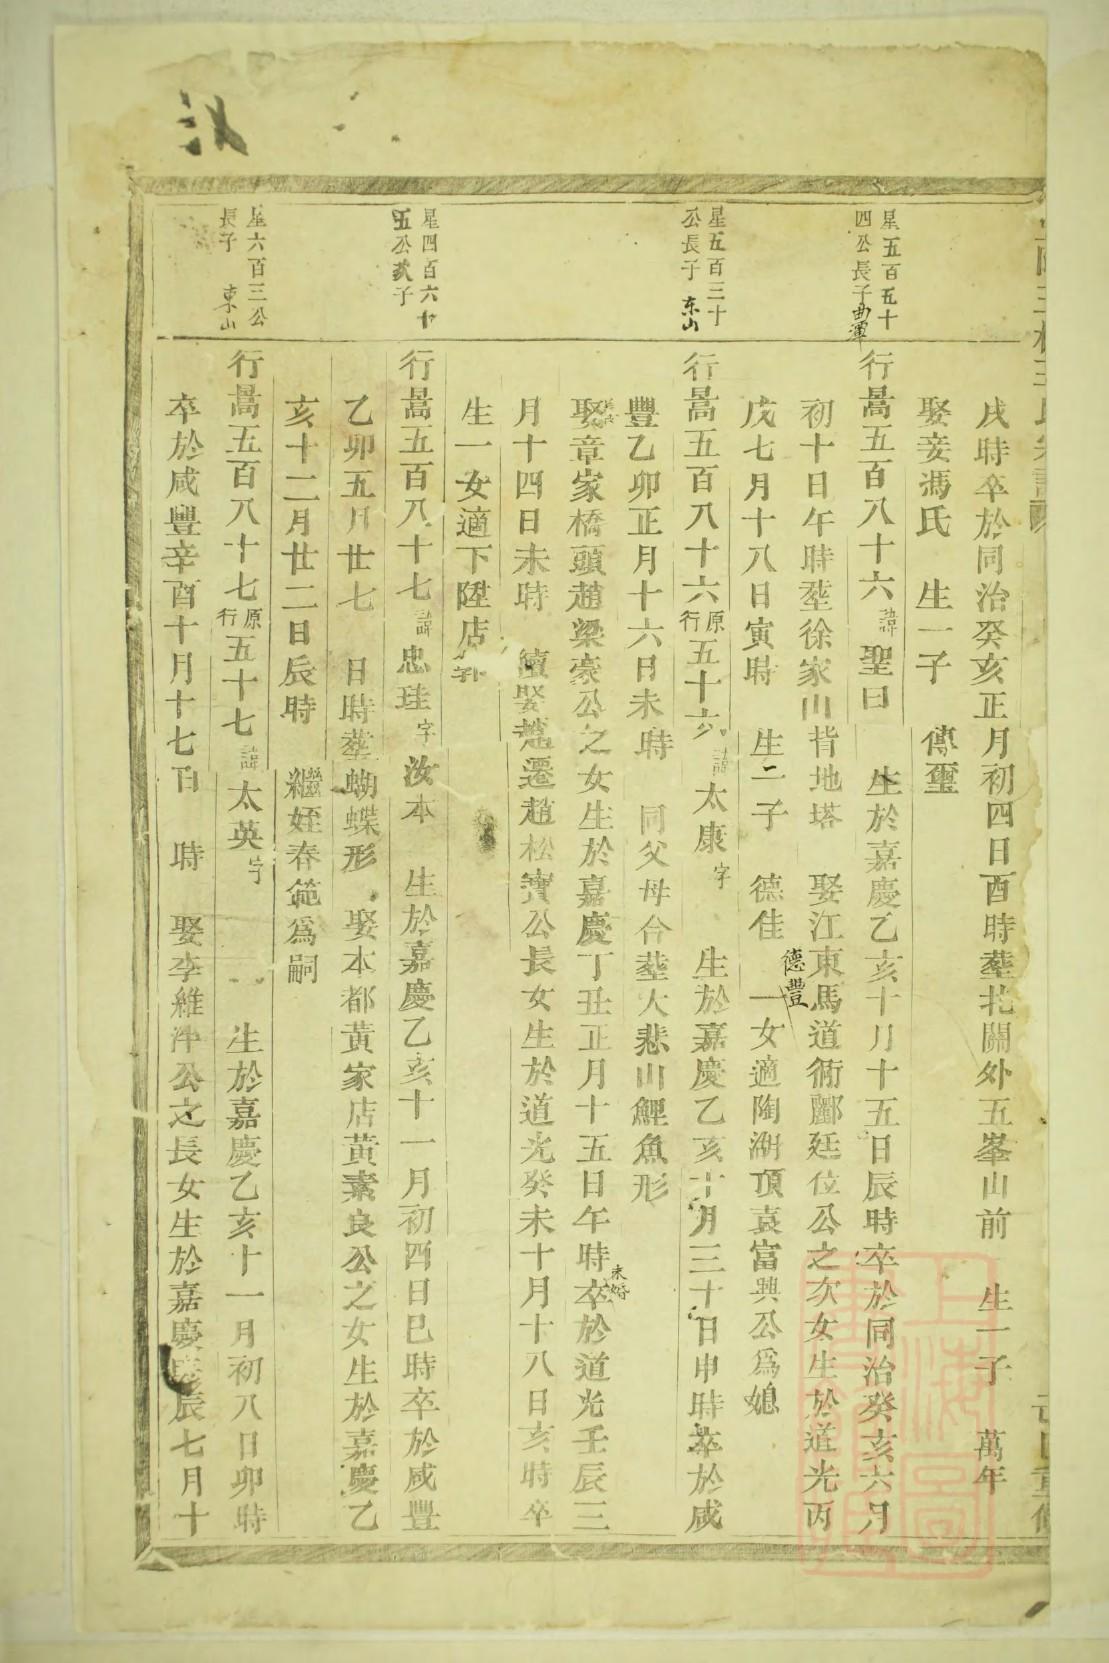 戌時卒於同治癸亥正月初四日酉時塟北關外五峯山前　生一子　萬年
娶妾馮氏　生一子　傳璽
星五百五十
四公長子
行暠五百八十六諱聖曰　生於嘉慶乙亥十月十五日辰時卒於同治癸亥六月
初十日午時塟徐家山背地塔　娶江東馬道衕酈廷位公之次女生於道光丙
戊七月十八日寅時　生二子　德佳　德豐　一女適陶湖頂袁富興公爲媳
星五百三十
公長子　东山
行暠五百八十六原行五十六諱太康字　生於嘉慶乙亥十月三十日申時卒於咸
豐乙卯正月十六日未時　同父母合塟大悲山鯉魚形
娶章家橋頭趙梁豪公之女生於嘉慶丁丑正月十五日午時未婚卒於道光壬辰三
月十四日未時　續娶趙遷趙松寶公長女生於道光癸未十月十八日亥時卒
生一女適下陞店
星四百六十
五公次子
行暠五百八十七諱忠珪字汝本　生於嘉慶乙亥十一月初四日巳時卒於咸豐
乙卯五月廿七　日時塟蝴蝶形　娶本都黃家店黃素良公之女生於嘉慶乙
亥十二月廿二日辰時　繼姪春範爲嗣
星六百三公
長子　東山
行暠五百八十七原行五十七諱太英字　生於嘉慶乙亥十一月初八日卯時
卒於咸豐辛酉十月十七日　時　娶李維沖公之長女生於嘉慶辰七月十